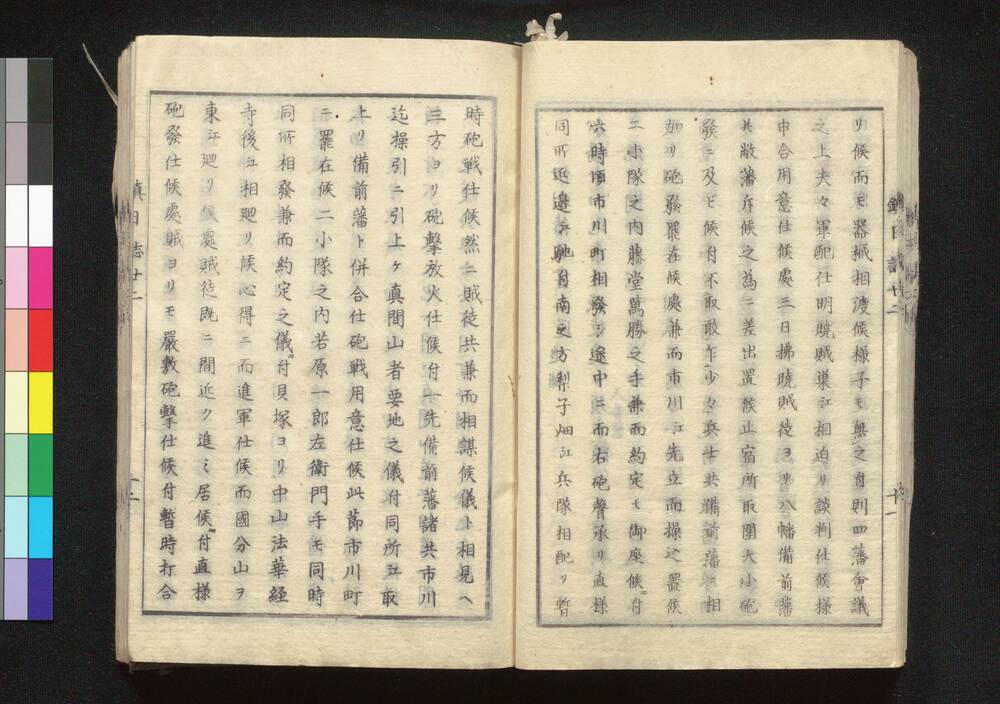 リ候而モ器械相渡候様子モ無之付則四藩會議
之上夫々軍配仕明曉賊巢江相迫リ談判仕候様
申合用意仕候處三日拂曉賊徒ヨリ八幡備前藩
共敝藩斥候之為ニ差出置候止宿所取圍大小砲
發ニ及ヒ候付不取敢乍少々兵士共備前藩ニ相
如リ砲發罷在候處兼而市川江先立而操込置候
二小隊之内藤堂萬勝之手兼而約定モ御座候ニ付
六時頃市川町相發シ途中ニ而右砲聲承リ直様
同所近邊江馳付南之方梨子畑江兵隊相配リ暫
時砲戦仕候然ニ賊徒共兼而相謀候儀ト相見ヘ
三方ヨリ砲撃放火仕候付一先備前藩諸共市川
迄操引ニ引上ケ真間山者要地之儀付同所江取
上リ備前藩ト併合仕砲戦用意仕候此節市川町
ニ罷在候二小隊之内若原一郎左衛門手モ同時
同所相發兼而約定之儀ニ付貝塚ヨリ中山法華経
寺後江相廻リ候心得ニ而進軍仕候而國分山ヲ
東江廻リ候處賊徒既ニ間近ク進ミ居候ニ付直様
砲發仕候處賊ヨリモ嚴敷砲撃仕候付暫時打合
鎮日誌廿二
十二
十一